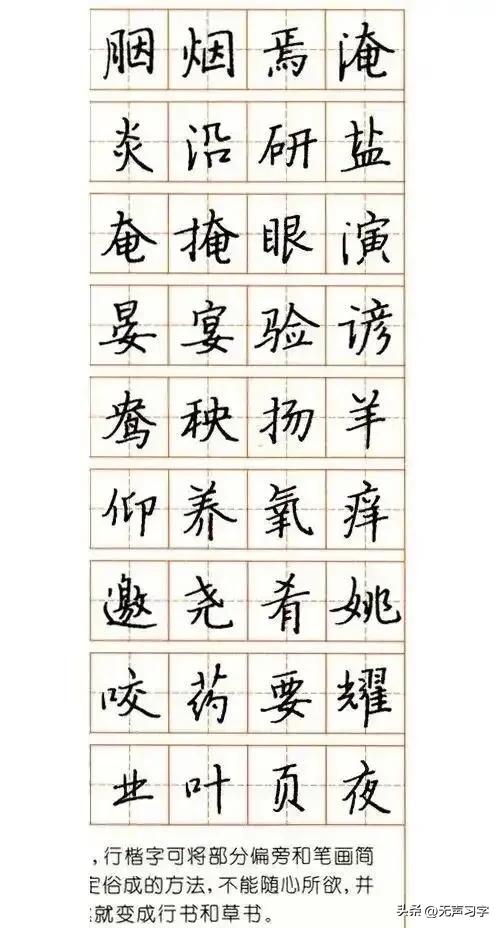 胭烟焉淹
炎沿研盐
奄掩眼演
晏宴验谚
鸯秧扬羊
仰养氧痒
邀尧肴姚
咬药要耀
业叶页夜
,行楷字可将部分偏旁和笔画简
定俗成的方法,不能随心所欲,并
就变成行书和草书。
头条@无声习字